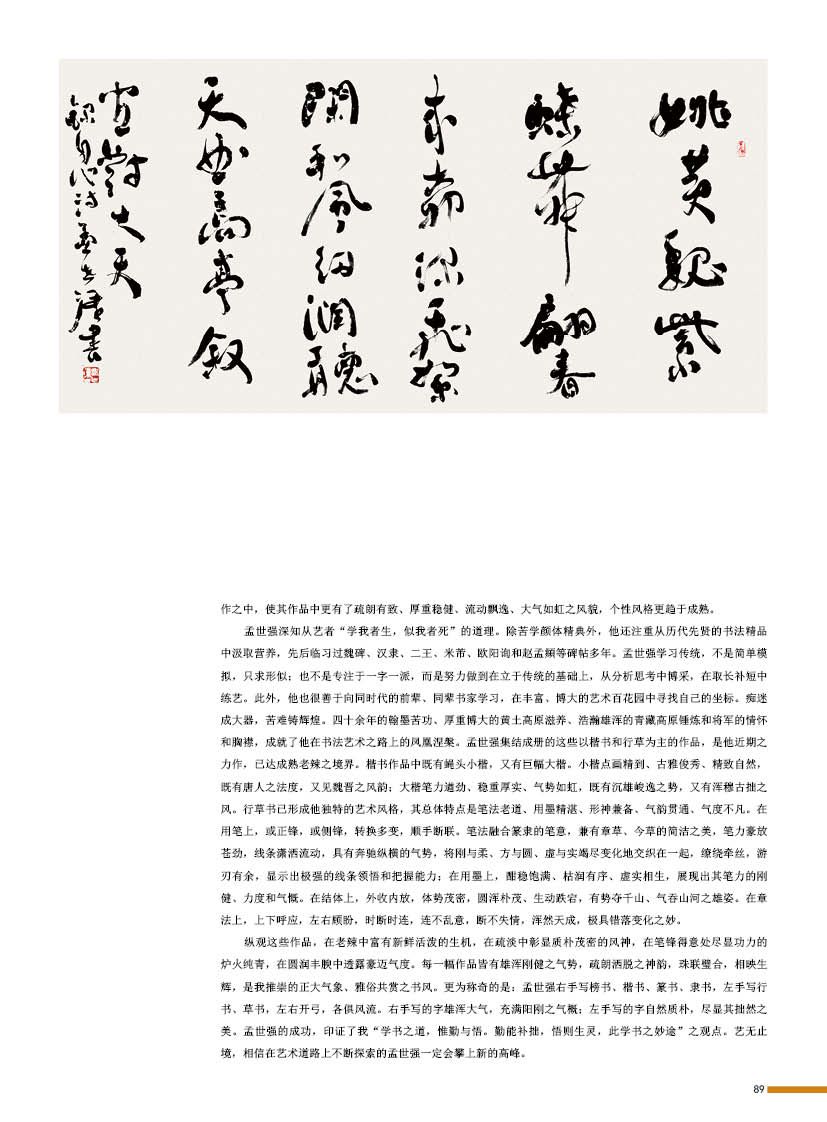 姚黄魏紫
蝶舞翩春
深飞
和风细润听
天高亭叙
宜对天
录自作诗孟世强书
作之中，使其作品中更有了疏朗有致、厚重稳健、流动飘逸、大气如虹之风貌，个性风格更趋于成熟。
孟世强深知从艺者“学我者生，似我者死”的道理。除苦学颜体精典外，他还注重从历代先贤的书法精品
中汲取营养，先后临习过魏碑、汉隶、二王、米芾、欧阳询和赵孟頫等碑帖多年。孟世强学习传统，不是简单模
拟，只求形似；也不是专注于一字一派，而是努力做到在立于传统的基础上，从分析思考中博采，在取长补短中
练艺。此外，他也很善于向同时代的前辈、同辈书家学习，在丰富、博大的艺术百花园中寻找自己的坐标。痴迷
成大器，苦难铸辉煌。四十余年的翰墨苦功、厚重博大的黄土高原滋养、浩瀚雄浑的青藏高原锤炼和将军的情怀
和胸襟，成就了他在书法艺术之路上的凤凰涅槃。孟世强集结成册的这些以楷书和行草为主的作品，是他近期之
力作，已达成熟老辣之境界。楷书作品中既有蝇头小楷，又有巨幅大楷。小楷点画精到、古雅俊秀、精致自然，
既有唐人之法度，又见魏晋之风韵；大楷笔力遒劲、稳重厚实、气势如虹，既有沉雄峻逸之势，又有浑穆古拙之
风。行草书已形成他独特的艺术风格，其总体特点是笔法老道、用墨精湛、形神兼备、气韵贯通、气度不凡。在
用笔上，或正锋，或侧锋，转换多变，顺手断联。笔法融合篆隶的笔意，兼有章草、今草的简洁之美，笔力豪放
苍劲，线条潇洒流动，具有奔驰纵横的气势，将刚与柔、方与圆、虚与实竭尽变化地交织在一起，缭绕牵丝，游
刃有余，显示出极强的线条领悟和把握能力；在用墨上，酣稳饱满、枯润有序、虚实相生，展现出其笔力的刚
健、力度和气慨。在结体上，外收内放，体势茂密，圆浑朴茂、生动跌宕，有势夺千山、气吞山河之雄姿。在章
法上，上下呼应，左右顾盼，时断时连，连不乱意，断不失情，浑然天成，极具错落变化之妙。
纵观这些作品，在老辣中富有新鲜活泼的生机，在疏淡中彰显质朴茂密的风神，在笔锋得意处尽显功力的
炉火纯青，在圆润丰腴中透露豪迈气度。每一幅作品皆有雄浑刚健之气势，疏朗洒脱之神韵，珠联璧合，相映生
辉，是我推崇的正大气象、雅俗共赏之书风。更为称奇的是：孟世强右手写榜书、楷书、篆书、隶书，左手写行
书、草书，左右开弓，各俱风流。右手写的字雄浑大气，充满阳刚之气概；左手写的字自然质朴，尽显其拙然之
美。孟世强的成功，印证了我“学书之道，惟勤与悟。勤能补拙，悟则生灵，此学书之妙途”之观点。艺无止
境，相信在艺术道路上不断探索的孟世强一定会攀上新的高峰。
89